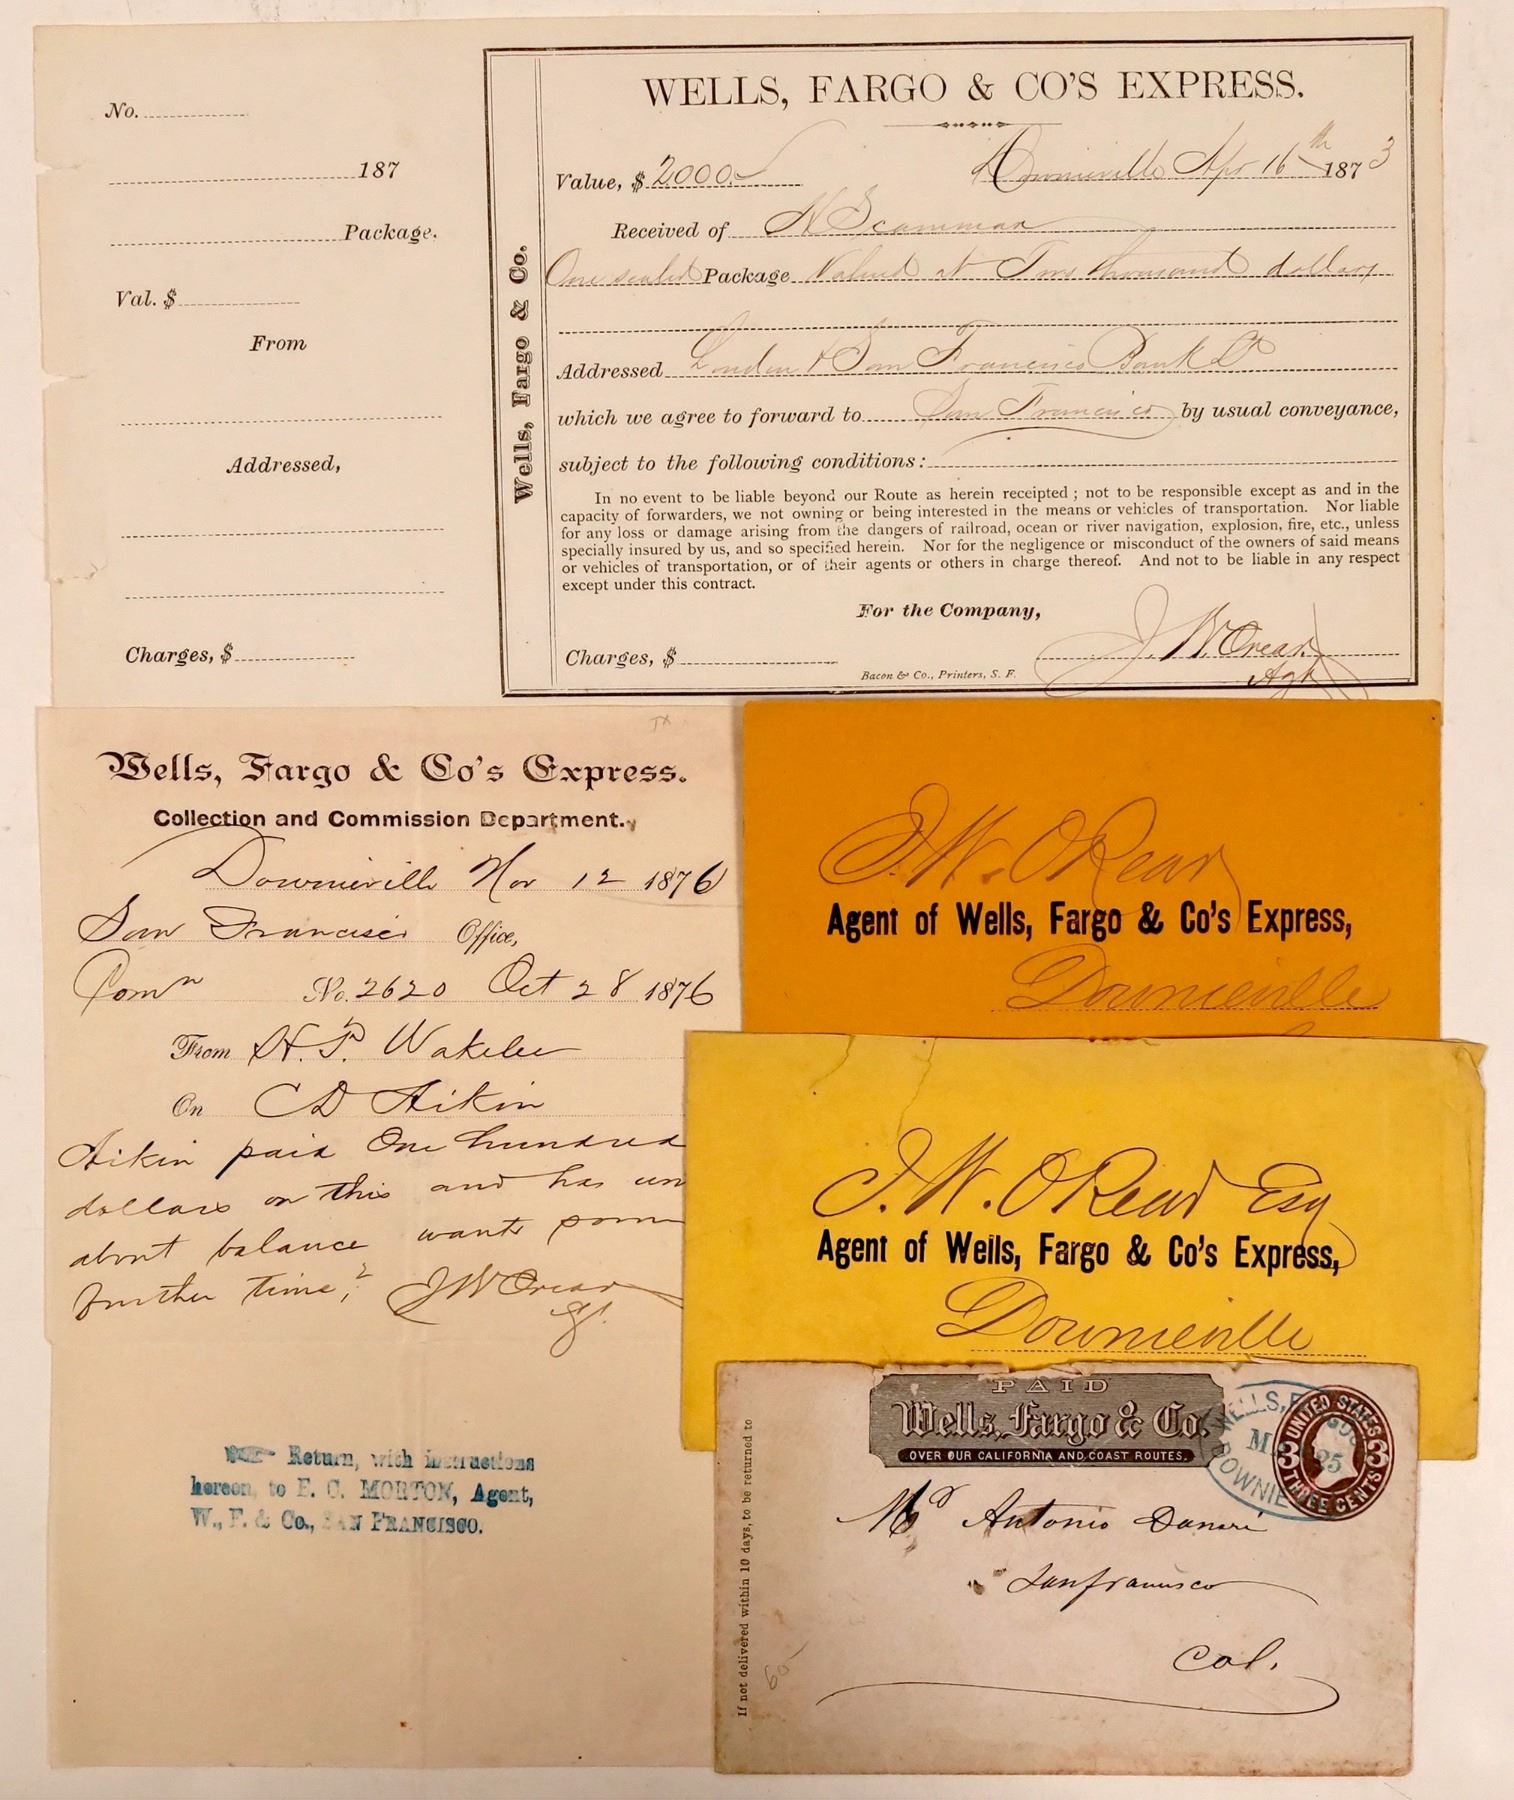 No.
187
Package.
Val. $
From
Addressed,
Charges, $
Wells, Fargo & Co.
WELLS, FARGO & CO'S EXPRESS.
Value, $ 2000. Downieville Apr 16th 1873
Received of N Scamman
One sealed Package Valued at Two thousand dollars
Addressed London & San Francisco Bank Ld
which we agree to forward to San Francisco by usual conveyance,
subject to the following conditions:
In no event to be liable beyond our Route as herein receipted; not to be responsible except as and in the
capacity of forwarders, we not owning or being interested in the means or vehicles of transportation. Nor liable
for any loss or damage arising from the dangers of railroad, ocean or river navigation, explosion, fire, etc., unless
specially insured by us, and so specified herein. Nor for the negligence or misconduct of the owners of said means
or vehicles of transportation, or of their agents or others in charge thereof. And not to be liable in any respect
except under this contract.
For the Company,
Charges, $ J. W. Orear
Agt
Bacon & Co., Printers, S. F.
Wells, Fargo & Co's Express.
Collection and Commission Department.
Downieville Nov 12 1876
San Francisco Office,
Comn No. 2620 Oct 28 1876
From H. P. Wakelee
On C D Aikin
Aikin paid One hundred
dollars on this and has
about balance wants some
further time, J W Orear
agt.
Return, with instructions
hereon, to E. C. MORTON, Agent,
W., F. & Co., SAN FRANCISCO.
J. W. ORear
Agent of Wells, Fargo & Co's Express,
Downieville
J. W. ORear Esq
Agent of Wells, Fargo & Co's Express,
Downieville
PAID
Wells, Fargo & Co.
OVER OUR CALIFORNIA AND COAST ROUTES.
WELLS, F
25
DOWNIE
UNITED STATES
3 3
THREE CENTS
If not delivered within 10 days, to be returned to
Mr Antonio
Sanfrancisco
Cal.
60-